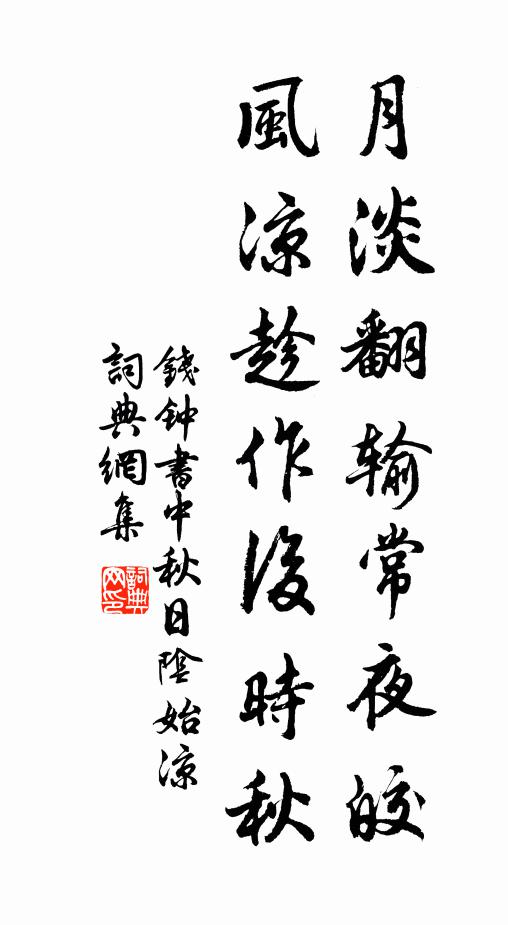 月淡翻输常夜皎
風凉趁作後時秋
錢钟書中秋日陰始凉
詞典網集
詞典網印